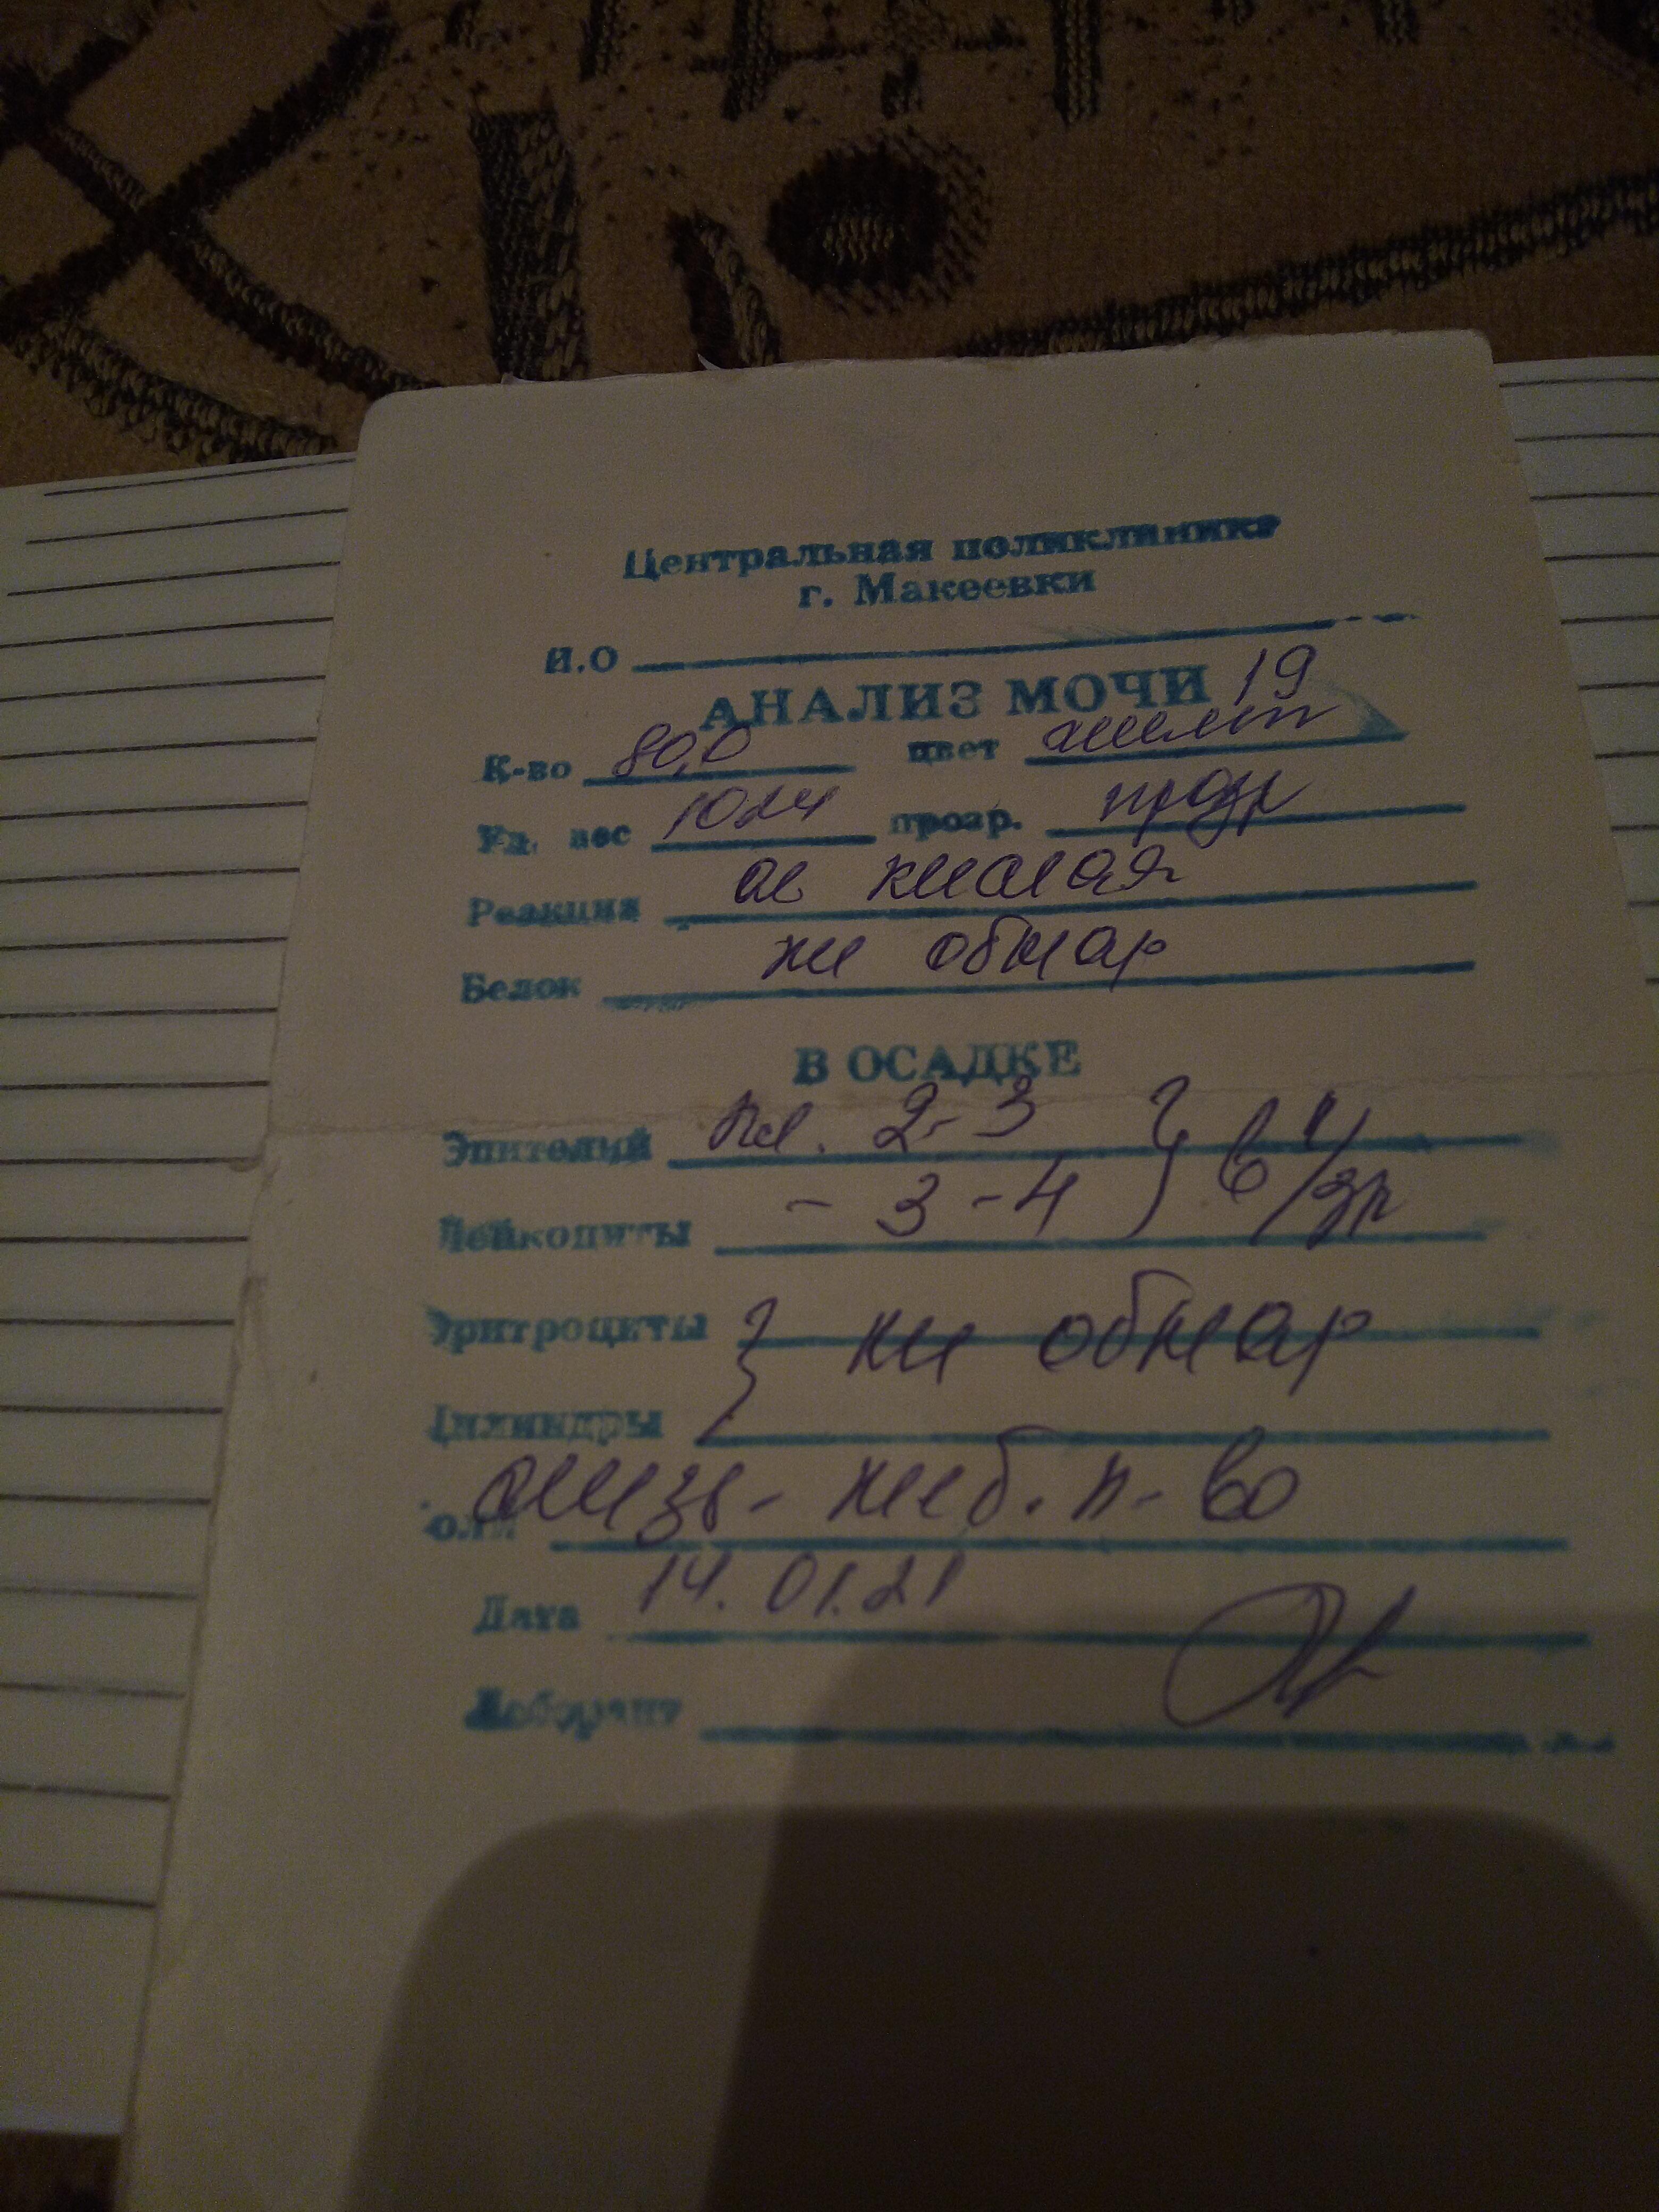 Центральная поликлиника
г. Макеевки
И.О
АНАЛИЗ МОЧИ 19
К-во 80,0 цвет желт
Уд. вес 1024 прозр. прозр
Реакция сл кислая
Белок не обнар
В ОСАДКЕ
Эпителий пл. 2-3
Лейкоциты - 3-4 } в п/зр
Эритроциты } не обнар
Цилиндры
слизь - неб. к-во
оли
Дата 14.01.21
Лаборант